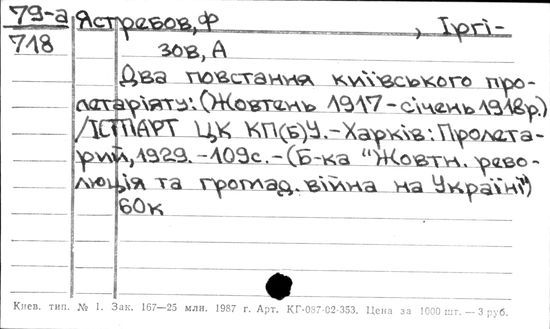 79-а Ястребов, Ф , Іргі-
718 зов, А
Два повстання київського про-
летаріяту: (Жовтень 1917 - січень 1918р.)
/ІСТПАРТ ЦК КП(б)У. - Харків: Пролета-
рий, 1929. - 109с. - (Б-ка "Жовтн. рево-
люція та громад. війна на Україні")
60к
Киев. тип. № 1. Зак. 167—25 млн. 1987 г. Арт. КГ-087-02-353. Цена за 1000 шт. — 3 руб.